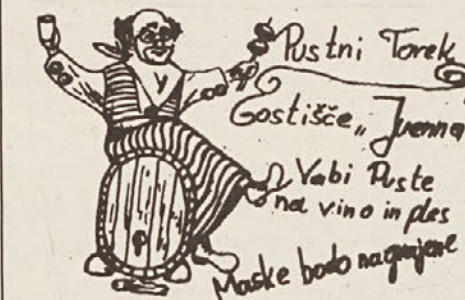 Pustni Torek
Gostišče „Jvenna"
Vabi Puste
na vino in ples
Maske bodo nagrajene